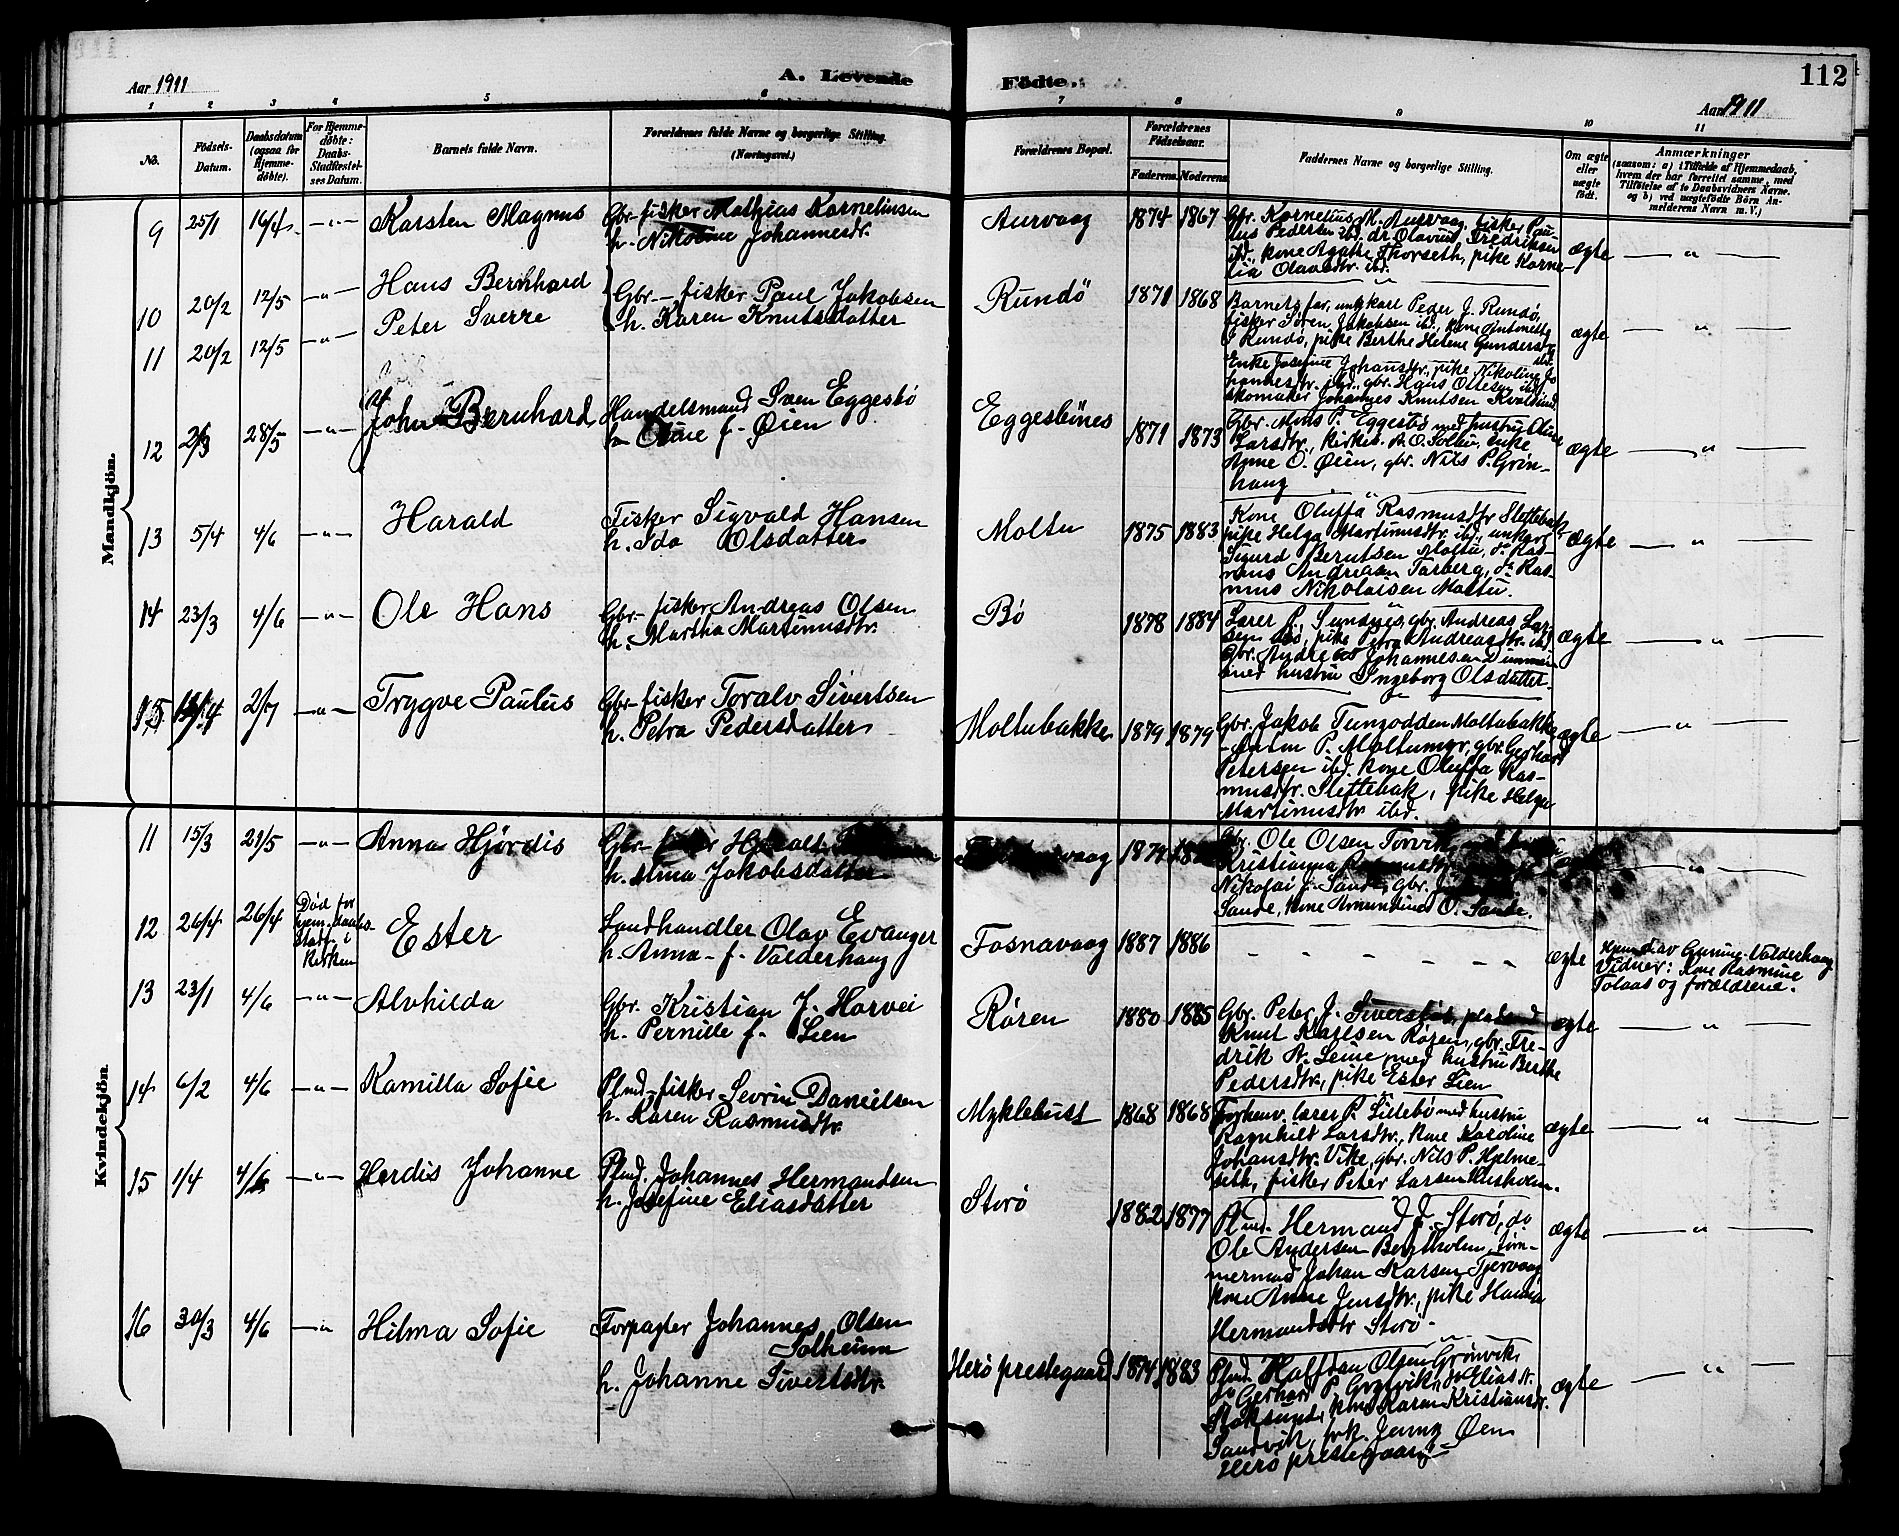 Aar 1911
A. Levende
Födte.
112
Aar 1911
1 2 3 4 5 6 7 8 9 10 11
No.
Födsels-
Datum.
Daabsdatum
(ogsaa for
Hjemme-
döbte).
For Hjemme-
döbte:
Daabs-
Stadfæstel-
ses Datum.
Barnets fulde Navn.
Forældrenes fulde Navne og borgerlige Stilling.
(Næringsvei.)
Forældrenes Bopæl.
Forældrenes
Födselsaar.
Faderens. Moderens.
Faddernes Navne og borgerlige Stilling.
Om ægte
eller
uægte
født.
Anmærkninger
(saasom: a) i Tilfælde af Hjemmedaab,
hvem der har forrettet samme, med
Tilföielse af to Daabsvidners Navne.
og b) ved uægtefödte Börn An-
melderens Navn m. V.)
Mandkjön.
9 25/1 16/4 —"— Karsten Magnus
Gbr-fisker Mathias Kornelinsen
h. Nikoline Johannesdr.
Aurvaag 1874 1867
Gbr. Kornelius M. Aurvaag, fisker Pau-
lus Pedersen ibd. dr. Olavius Fredriksen
ibd., kone Agathe Thorseth, pike Korne-
lia Olavsdtr. ibd.
ægte — " —
10 20/2 12/5 —"— Hans Bernhard
11 20/2 12/5 —"— Peter Sverre
Gbr-fisker Paul Jakobsen
h. Karen Knutsdatter
Rundö 1871 1868
Barnets far, ungkarl Peder J. Rundø,
fisker Søren Jakobsen ibd., kone Antonette
P. Rundø, pike Berthe Helene Gundersdtr
Enke Josefine Johansdtr., pike Nikoline Jo
hannesdtr. ibd., gbr. Hans Ottesen ibd.
skomaker Johannes Knutsen Kvalsund.
ægte — " —
12 2/3 28/5 —"— John Bernhard
Handelsmand Sven Eggesbø
f. Øien
Eggesbönes 1871 1873
Gbr. Mons P. Eggesbø med hustru Oline
Larsdtr., kirkes. A. O. Soltu, enke
Anne O. Øien, gbr. Nils P. Grin-
haug
ægte — " —
13 5/4 4/6 —"— Harald
Fisker Sigvald Hansen
h. Ida Olsdatter
Moltu 1875 1883
Kone Oluffa Rasmusdtr Slettebak
pike Helga Martinusdtr. ibd., ungkar
Sigurd Berntsen Moltu, do Ras-
mus Andreasen Tarberg, do Ras-
mus Nikolaisen Moltu.
ægte — " —
14 23/3 4/6 —"— Ole Hans
Gbr-fisker Andreas Olsen
h. Martha Martinusdtr.
Bø 1878 1884
Lærer P. Sundnes, gbr. Andreas Lar-
sen Bø, pike Petra Andreasdtr. ibd
Gbr. Andreas Johannesen Dimmen
med hustru Ingeborg Olsdatter.
ægte — " —
15 2/7 —"— Trygve Paulus
Gbr-fisker Toralv Sivertsen
h. Petra Pedersdatter
Moltubakke 1879 1879
Gbr. Jakob Tungodden Moltubakke
Anton P. Moltumyr, gbr. Gerhard
Petersen ibd. kone Oluffa Ras-
musdtr. Slettebak, pike Helga
Martinusdtr ibd.
ægte — " —
Kvindekjön.
11 15/3 21/5 —"— Anna Hjørdis
Gbr-fisker
h. Jakobsdatter
Gbr. Ole Olsen Torvik
Kristianna
Nikolai J. Sande, gbr.
Sande, kone Amundine O. Sande.
— " —
12 26/4 26/4
Død før
hjem.daabs
stadf. i
kirken
Ester
Landhandler Olav Evanger
h. Anna f. Valderhaug
Fosnavaag 1887 1886
- - - - - -
ægte
Hjemd. av Gurine Valderhaug
Vidner: Kone Rasmine
Tolaas og forældrene.
13 23/1 4/6 —"— Alvhilda
Gbr. Kristian J. Horvei
h. Pernille f. Lien
Røren 1880 1885
Gbr. Peter J.
Knut Karlsen Røren, gbr. Fre-
drik A. Leine med hustru Berthe
Pedersdtr., pike Ester Lien
ægte — " —
14 6/2 4/6 —"— Kamilla Sofie
Plmd-fisker Sevrin Danielsen
h. Karen Rasmusdtr.
Myklebust 1868 1868
Forhenv. lærer P. Lillebø med hustru
Ragnhilt Larsdtr., kone Karoline
Johansdtr. Vike, gbr. Nils P. Hjelme-
seth, fisker Peter Larsen Kusholm.
ægte — " —
15 1/4 4/6 —"— Herdis Johanne
Plmd. Johannes Hermandsen
h. Josefine Eliasdatter
Storø 1882 1877
Plmd. Hermand J. Storø, do
Ole Andersen Bergtholm, tøm-
mermand Johan Larsen Tjervaag
kone Anne Jensdtr., pike Hanna
Hermandsdtr Storø.
ægte — " —
16 30/3 4/6 —"— Hilma Sofie
Forpagter Johannes Olsen
Solheim
h. Johanne Sivertsdtr.
Herø prestegaard 1874 1883
Plmd. Halfdan Olsen Grønvik,
do Gerhard P. Grønvik, do Elias A.
Stoksund, kone Karen Kristiansdr.
Sandvik, frk. Jenny Øen
Herø prestegaard
ægte — " —